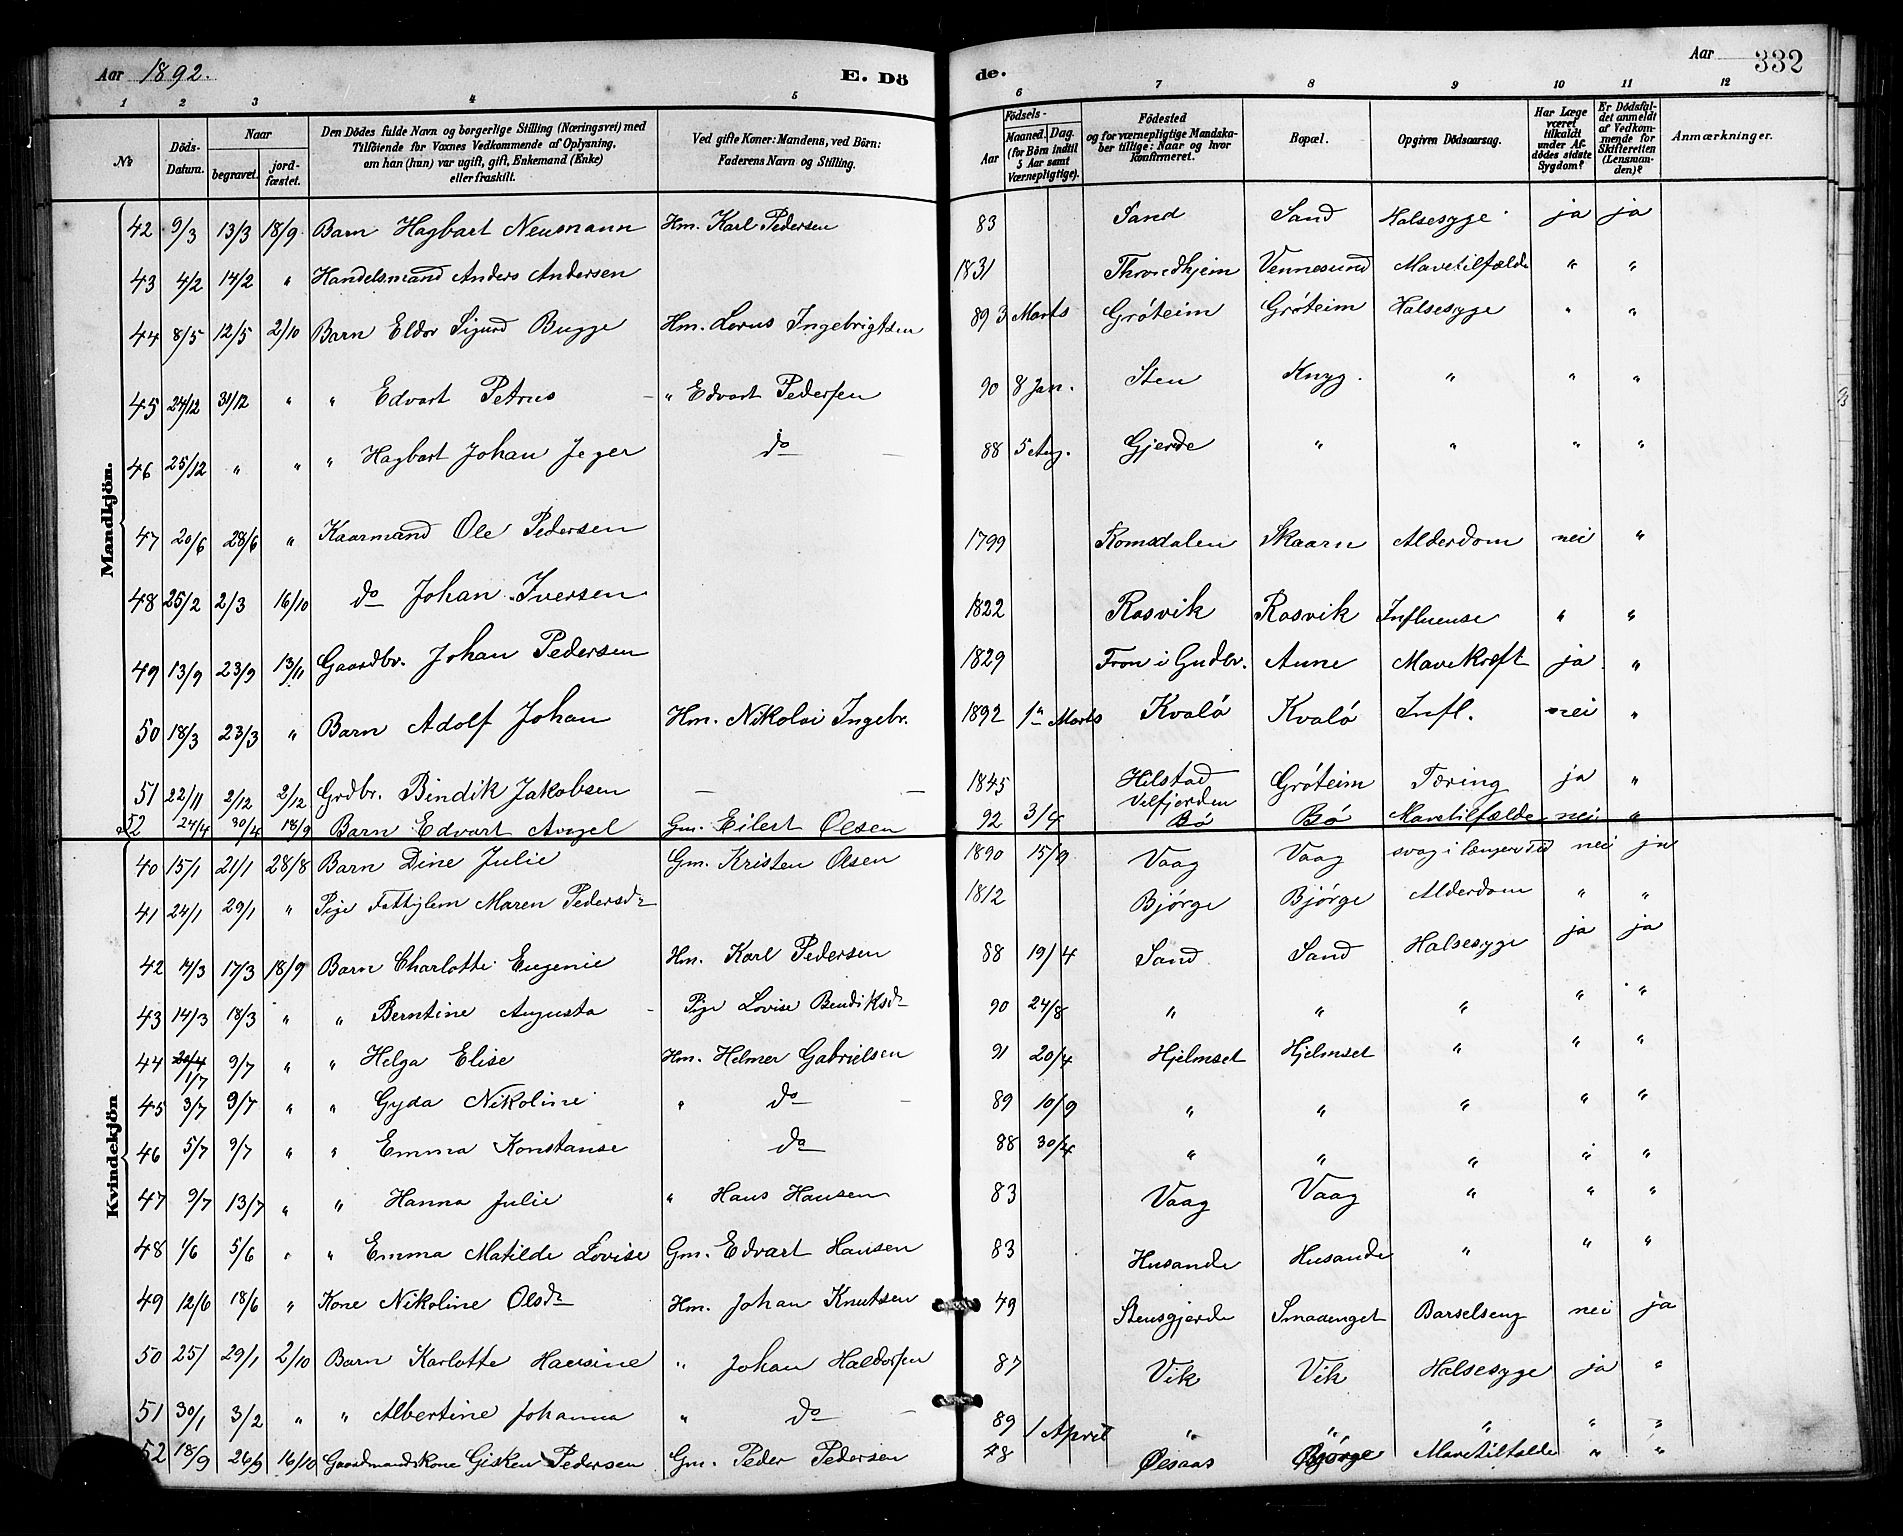 Aar 1892. E. Dö de. Aar 332
1 2 3 4 5 6 7 8 9 10 11 12
No Döds-Datum. Naar begravet. jord-fæstet. Den Dödes fulde Navn og borgerlige Stilling (Næringsvei) med Tilföiende for Voxnes Vedkommende af Oplysning, om han (hun) var ugift, gift, Enkemand (Enke) eller fraskilt. Ved gifte Koner: Mandens, ved Börn: Faderens Navn og Stilling. Födsels- Aar Maaned. Dag. (for Börn indtil 5 Aar samt Værnepligtige). Födested og for værnepligtige Mandskaber tillige: Naar og hvor konfirmeret. Bopæl. Opgiven Dödsaarsag. Har Læge været tilkaldt under Afdödes sidste Sygdom? Er Dödsfaldet anmeldt af Vedkommende for Skifteretten (Lensmanden)? Anmærkninger.
Mandkjön.
42 9/3 13/3 18/9 Barn Hagbart Neumann Hm. Karl Pedersen 83 Sand Sand Halsesyge ja ja
43 4/2 14/2 " Handelsmand Anders Andersen 1831 Throndhjem Vennesund Mavetilfælde " "
44 8/5 12/5 2/10 Barn Eldor Sigurd Bugge Hm. Lorus Ingebrigtsen 89 3 Marts Gröteim Gröteim Halsesyge " "
45 24/12 31/12 " " Edvart Petrus - " Edvart Pedersen 90 8 Jan. Sten Knyg. " " "
46 25/12 " " " Hagbart Johan Jeger do - 88 5 Aug. Gjerde " " " "
47 20/6 28/6 " Kaarmand Ole Pedersen 1799 Romsdalen Skaarn Alderdom nei "
48 25/2 2/3 16/10 do Johan Iversen 1822 Rosvik Rosvik Influense " "
49 13/9 23/9 13/11 Gaardbr. Johan Pedersen 1829 Fron i Gudbr. Aune Mavekræft ja "
50 18/3 23/3 " Barn Adolf Johan Hm. Nikolai Ingebr. 1892 1ste Marts Kvalö Kvalö Infl. nei "
51 22/11 2/12 2/12 Grdbr. Bindik Jakobsen - - 1845 Hilstad Vilfjorden Gröteim Tæring ja "
52 24/4 30/4 18/9 Barn Edvart Angel Gm. Eilert Olsen 92 3/4 Bö Bö Mavetilfælde nei "
Kvindekjön
40 15/1 21/1 28/8 Barn Dine Julie Gm. Kristen Olsen 1890 15/9 Vaag Vaag svag i længere Tid nei ja
41 24/1 29/1 " Pige Fattiglem Maren Pedersdr 1812 Björge Björge Alderdom " "
42 4/3 17/3 18/9 Barn Charlotte Eugenie Hm. Karl Pedersen 88 19/4 Sand Sand Halsesyge ja ja
43 14/3 18/3 " " Berntine Augusta - Pige Lovise Bendiksdr 90 24/8 " " " " "
44 20/4 1/7 9/7 " " Helga Elise Hm. Helmer Gabrielsen 91 20/4 Hjelmset Hjelmset " " "
45 3/7 9/7 " " Gyda Nikoline " do - 89 10/9 " " " " "
46 5/7 9/7 " " Emma Konstanse do 88 30/4 " " " " "
47 9/7 13/7 " " Hanna Julie " Hans Hansen 83 Vaag Vaag " " "
48 1/6 5/6 " " Emma Matilde Lovise Gm. Edvart Hansen 83 Husande Husande " " "
49 12/6 18/6 " Kone Nikoline Olsdr Hm. Johan Knutsen 49 Stensgjerde Smaaenget Barselseng nei ja
50 25/1 29/1 2/10 Barn Karlotte Haersine " Johan Haldorsen 87 Vik Vik Halsesyge ja "
51 30/1 3/2 " " Albertine Johanna " do - 89 1 April " " " " "
52 18/9 26/9 16/10 Gaardmandskone Gisken Pedersen Gm. Peder Pedersen 48 Ölsaas Björge Mavetilfælde " "